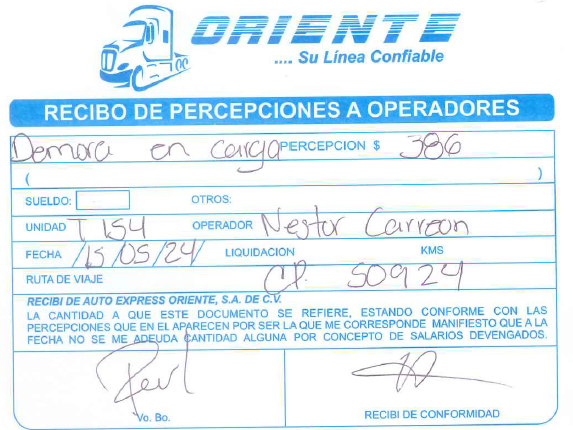 ORIENTE
.... Su Línea Confiable
RECIBO DE PERCEPCIONES A OPERADORES
Demora en carga PERCEPCION $ 386
( )
SUELDO: OTROS:
UNIDAD T 154 OPERADOR Nestor Carreon
FECHA /15/05/24/ LIQUIDACION KMS
RUTA DE VIAJE CP. 50924
RECIBI DE AUTO EXPRESS ORIENTE, S.A. DE C.V.
LA CANTIDAD A QUE ESTE DOCUMENTO SE REFIERE, ESTANDO CONFORME CON LAS
PERCEPCIONES QUE EN EL APARECEN POR SER LA QUE ME CORRESPONDE MANIFIESTO QUE A LA
FECHA NO SE ME ADEUDA CANTIDAD ALGUNA POR CONCEPTO DE SALARIOS DEVENGADOS.
Vo. Bo. RECIBI DE CONFORMIDAD